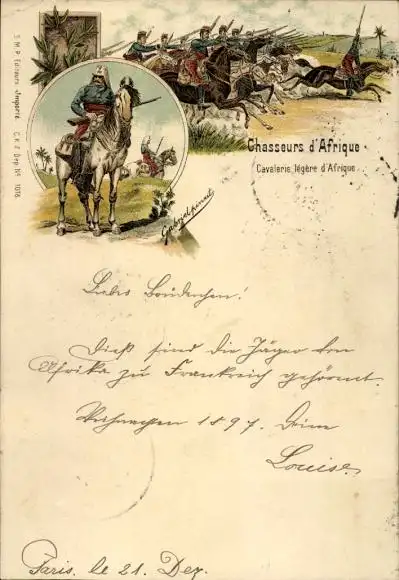 S.M.P. Editeurs. Importé. C.K.Z. Dep. No. 1016
Chasseurs d'Afrique
Cavalerie légère d'Afrique
Liebes Brüderchen!
Dieß sind die Jäger von
Afrika zu Frankreich gehörent.
Weihnachten 1897. Deine
Louise.
Paris, le 21. Dez.